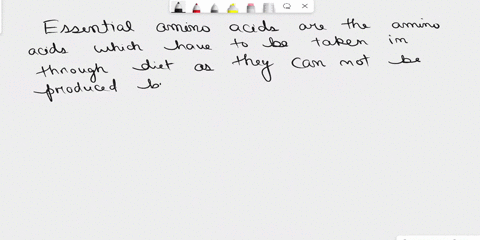 Essential amino acids are the amino
acids which have to be taken in
through diet as they can not be
produced b